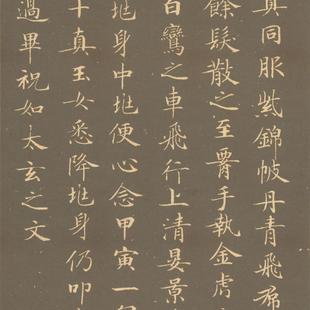 真同服紫錦帔丹青飛帬
餘髮散之至腰手執金虎
白鸞之車飛行上清晏景
兆身中兆便心念甲寅一
十真玉女悉降兆身仍叩
過畢祝如太玄之文